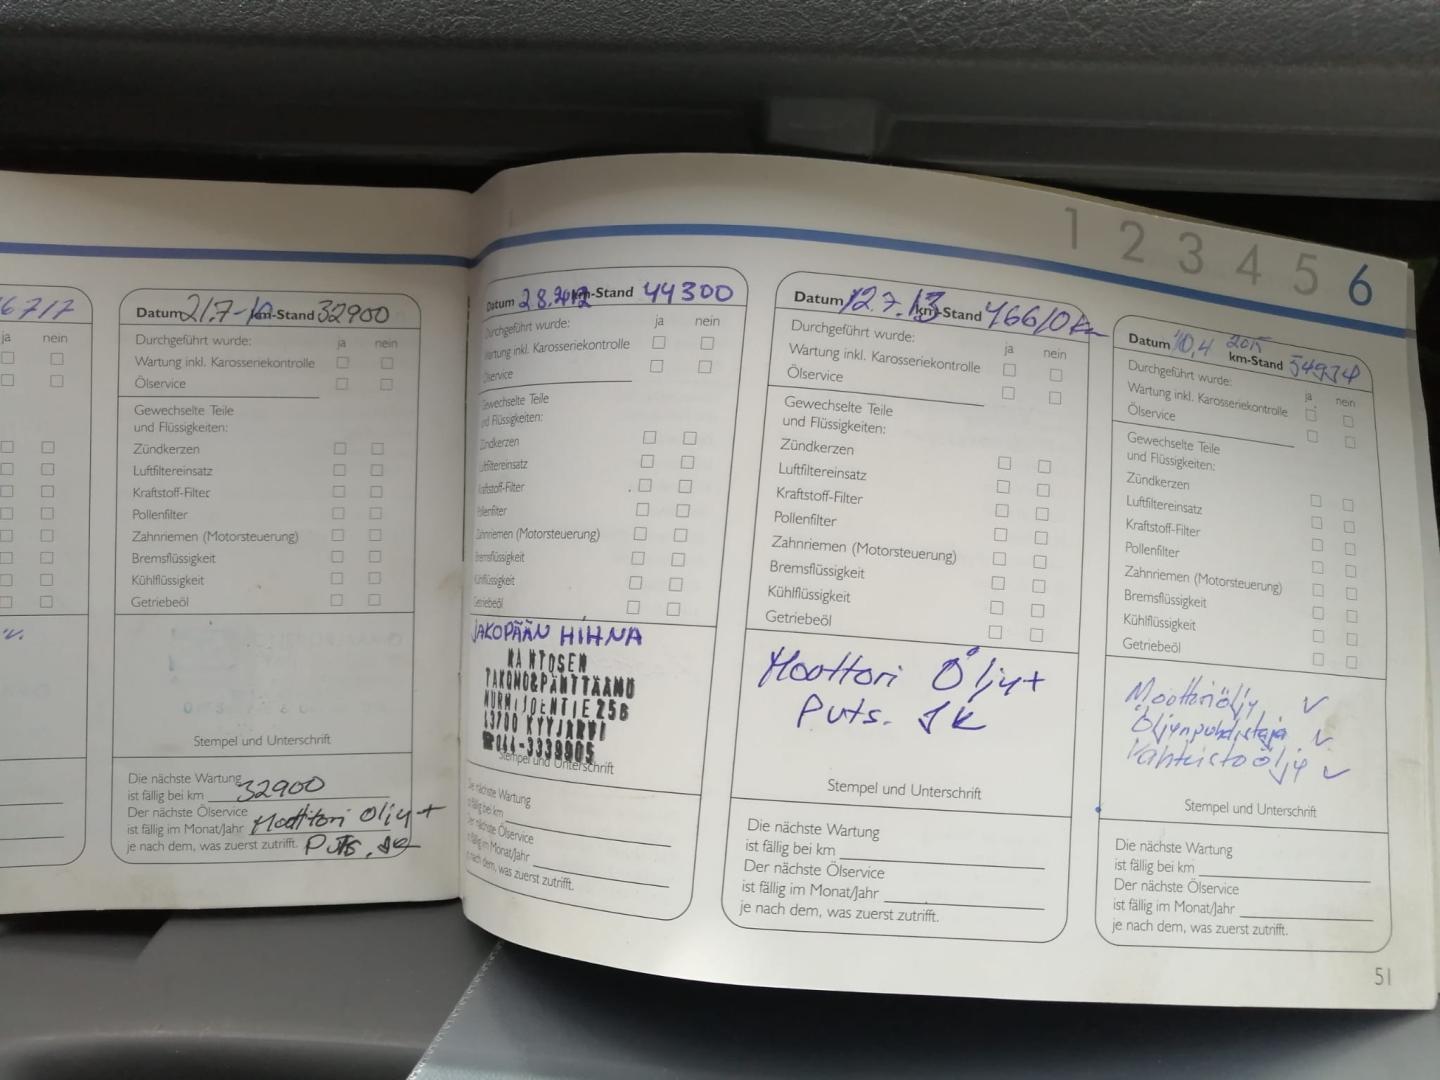 6717
ja nein
Datum 21.7-10 km-Stand 32900
Durchgeführt wurde: ja nein
Wartung inkl. Karosseriekontrolle
Ölservice
Gewechselte Teile
und Flüssigkeiten:
Zündkerzen
Luftfiltereinsatz
Kraftstoff-Filter
Pollenfilter
Zahnriemen (Motorsteuerung)
Bremsflüssigkeit
Kühlflüssigkeit
Getriebeöl
Stempel und Unterschrift
Die nächste Wartung
ist fällig bei km 32900
Der nächste Ölservice
ist fällig im Monat/Jahr Moottori Öljy+
je nach dem, was zuerst zutrifft. Puts. JK
1 2 3 4 5 6
Datum 2 8.2012 km-Stand 44300
Durchgeführt wurde: ja nein
Wartung inkl. Karosseriekontrolle
Ölservice
Gewechselte Teile
und Flüssigkeiten:
Zündkerzen
Luftfiltereinsatz
Kraftstoff-Filter
Pollenfilter
Zahnriemen (Motorsteuerung)
Bremsflüssigkeit
Kühlflüssigkeit
Getriebeöl
JAKOPÄÄN HIHNA
KANTOSEN
TAKOMO&PÄNTTÄÄMÖ
NURMIJOENTIE 256
43700 KYYJÄRVI
☎044-3339905
Stempel und Unterschrift
Die nächste Wartung
ist fällig bei km
Der nächste Ölservice
ist fällig im Monat/Jahr
je nach dem, was zuerst zutrifft.
Datum 12.7.13 km-Stand 46610km
Durchgeführt wurde: ja nein
Wartung inkl. Karosseriekontrolle
Ölservice
Gewechselte Teile
und Flüssigkeiten:
Zündkerzen
Luftfiltereinsatz
Kraftstoff-Filter
Pollenfilter
Zahnriemen (Motorsteuerung)
Bremsflüssigkeit
Kühlflüssigkeit
Getriebeöl
Moottori Öljy+
Puts. JK
Stempel und Unterschrift
Die nächste Wartung
ist fällig bei km
Der nächste Ölservice
ist fällig im Monat/Jahr
je nach dem, was zuerst zutrifft.
Datum 10.4 2015 km-Stand 54934
Durchgeführt wurde: ja nein
Wartung inkl. Karosseriekontrolle
Ölservice
Gewechselte Teile
und Flüssigkeiten:
Zündkerzen
Luftfiltereinsatz
Kraftstoff-Filter
Pollenfilter
Zahnriemen (Motorsteuerung)
Bremsflüssigkeit
Kühlflüssigkeit
Getriebeöl
Moottoriöljy ✓
Öljynpuhdistaja ✓
Vaihteistoöljy ✓
Stempel und Unterschrift
Die nächste Wartung
ist fällig bei km
Der nächste Ölservice
ist fällig im Monat/Jahr
je nach dem, was zuerst zutrifft.
51